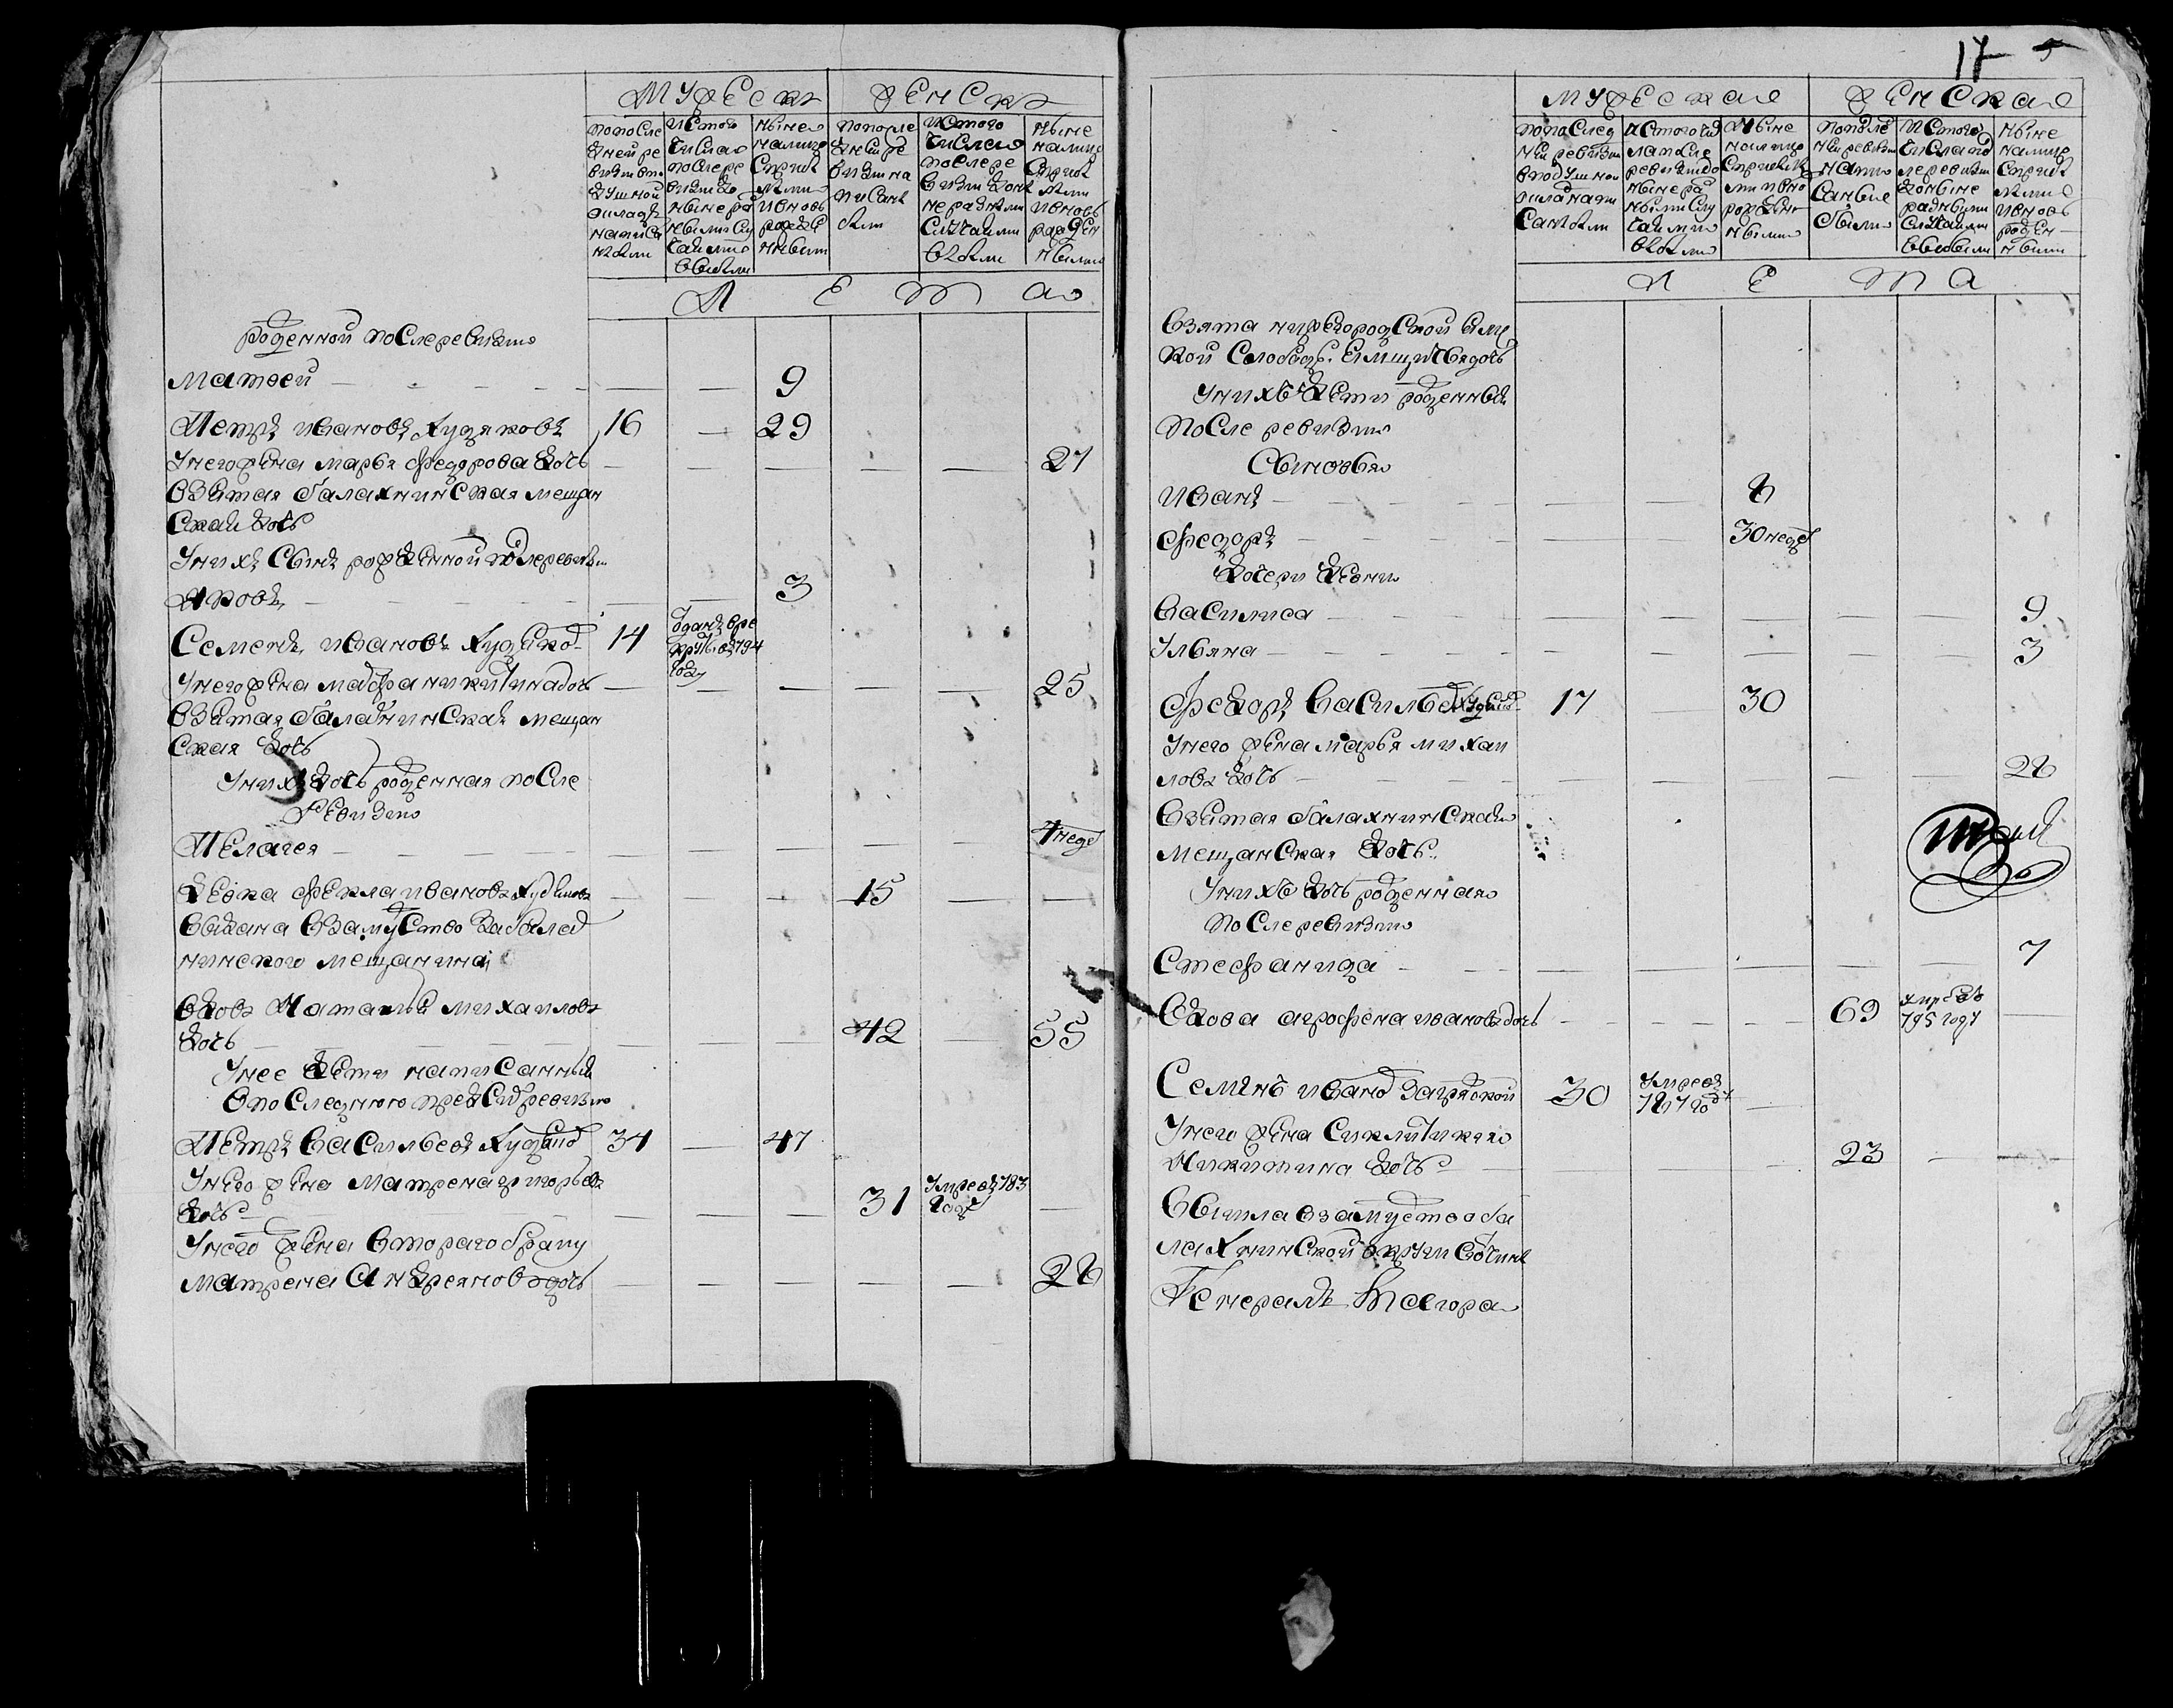 17
Мужескъ Женскъ
по после дней ре визiи въ по душной окладъ написа ными
ис того числа после ре визiи до ныне ра зными слу чаями выбыли
ныне на лицо с прибы лыми и вновь рожде нными
по после дней ре визiи на писаны были
ис того числа после ре визiи до ныне разными случаями выбыли
ныне на лицо с прибы лыми и вновь рожден ными
Л Е Т А
рожденной после ревизiи
Матвей 9
Петръ Ивановъ Худяковъ 16 29
У него жена Марья Федорова дочь 27
взятая балахнинская мещан
ская дочь
У нихъ сынъ рожденной после ревизiи
Яковъ 3
Семенъ Ивановъ Худяков 14 отданъ в ре круты в 794 году
У него жена Мавра Никитина дочь 25
взятая балахнинская мещан
ская дочь
У нихъ дочь рожденная после
ревизiи
Пелагея 4 недель
Девка Фекла Иванова Худякова 15
выдана в замужство за балах
нинского мещанина
Вдова Наталья Михайлова
дочь 42 55
У нее дети написанныя
в последнюю пред сим ревизiю
Петръ Васильевъ Худяков 34 47
У него жена Матрена Григорьева
дочь 31 умре въ 783 году
У него жена второго браку
Матрена Андреянова дочь 28
Мужеска Женска
по послед ней ревизiи в подушной окладъ напи саными
ис того чис ла после ревизiи до ныне ра зными слу чаями выбыли
ныне на лицо с прибылы ми и вно рожден ными
по после дней ревизiи напи саные были
ис того числа по ле ревизiи до ныне разными случаями выбыли
ныне на лицо с прибы лыми и вновь рожден ными
Л Е Т А
взята нижегородской ямс
кой слободы ямщичья дочь
У нихъ дети рожденныя
после ревизiи
Сыновья
Иванъ 8
Федоръ 30 недель
Дочери девки
Василиса 9
Ульяна 3
Федоръ Васильев Худяков 17 30
У него жена Марья Михаи
лова дочь 28
взятая балахнинская
мещанская дочь
У нихъ дочь рожденная
после ревизiи
Стефанида 7
Вдова Агрофена Иванова дочь 69 умре въ 795 году
Семенъ Иванов Загряской 30 умре въ 787 году
У него жена Сиклитикия
Никитина дочь 23
Вышла в замужство ба
лахнинской округи вотчины
Генералъ Маiора